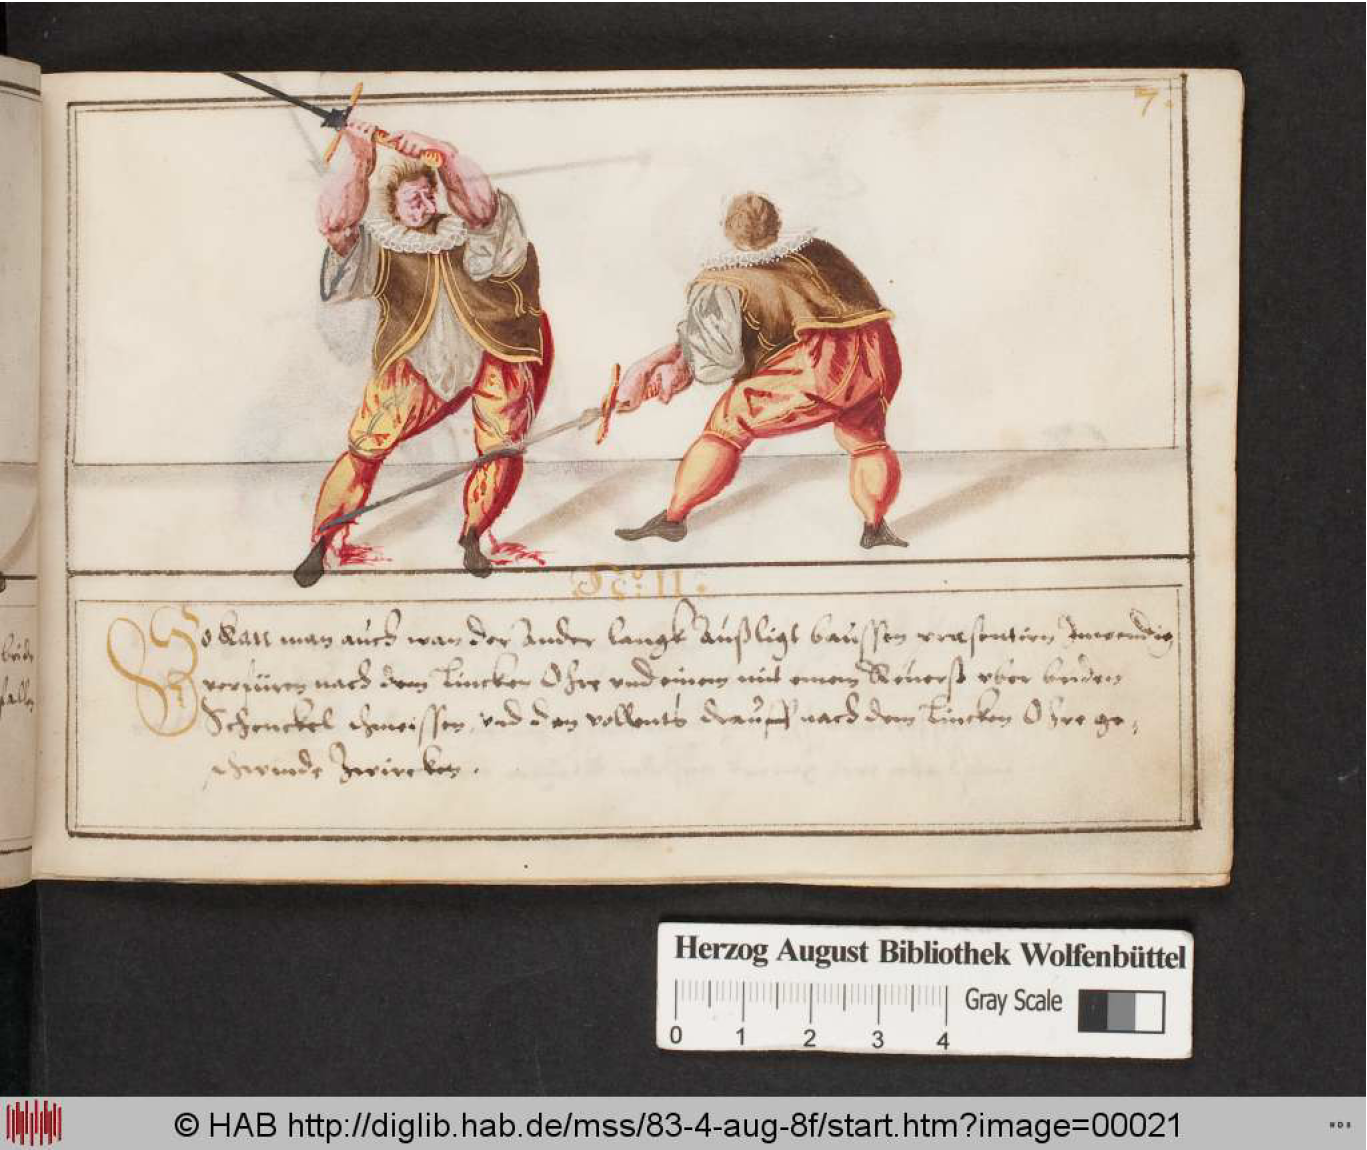 7.
No: 11.
So Kan man auch wan der Ander langk Außligt baussen præsentirn Inwendig
verfüren nach dem Lincken Ohre und einem mit einem Reverß uber beiden
Schenckel schmeissen, und den vollents drauff nach dem Lincken Ohre ge-
schwinde Zwircken.
Herzog August Bibliothek Wolfenbüttel
Gray Scale
0 1 2 3 4
© HAB http://diglib.hab.de/mss/83-4-aug-8f/start.htm?image=00021